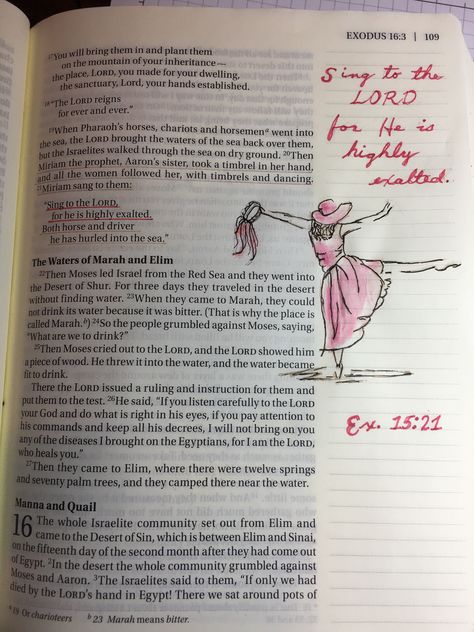 EXODUS 16:3 | 109
17You will bring them in and plant them
on the mountain of your inheritance—
the place, LORD, you made for your dwelling,
the sanctuary, Lord, your hands established.
18“The LORD reigns
for ever and ever.”
19When Pharaoh’s horses, chariots and horsemena went into
the sea, the LORD brought the waters of the sea back over them,
but the Israelites walked through the sea on dry ground. 20Then
Miriam the prophet, Aaron’s sister, took a timbrel in her hand,
and all the women followed her, with timbrels and dancing.
21Miriam sang to them:
“Sing to the LORD,
for he is highly exalted.
Both horse and driver
he has hurled into the sea.”
The Waters of Marah and Elim
22Then Moses led Israel from the Red Sea and they went into
the Desert of Shur. For three days they traveled in the desert
without finding water. 23When they came to Marah, they could
not drink its water because it was bitter. (That is why the place is
called Marah.b) 24So the people grumbled against Moses, saying,
“What are we to drink?”
25Then Moses cried out to the LORD, and the LORD showed him
a piece of wood. He threw it into the water, and the water became
fit to drink.
There the LORD issued a ruling and instruction for them and
put them to the test. 26He said, “If you listen carefully to the LORD
your God and do what is right in his eyes, if you pay attention to
his commands and keep all his decrees, I will not bring on you
any of the diseases I brought on the Egyptians, for I am the LORD,
who heals you.”
27Then they came to Elim, where there were twelve springs
and seventy palm trees, and they camped there near the water.
Manna and Quail
16 The whole Israelite community set out from Elim and
came to the Desert of Sin, which is between Elim and Sinai,
on the fifteenth day of the second month after they had come out
of Egypt. 2In the desert the whole community grumbled against
Moses and Aaron. 3The Israelites said to them, “If only we had
died by the LORD’s hand in Egypt! There we sat around pots of
a 19 Or charioteers b 23 Marah means bitter.
Sing to the
LORD
for He is
highly
exalted.
Ex. 15:21